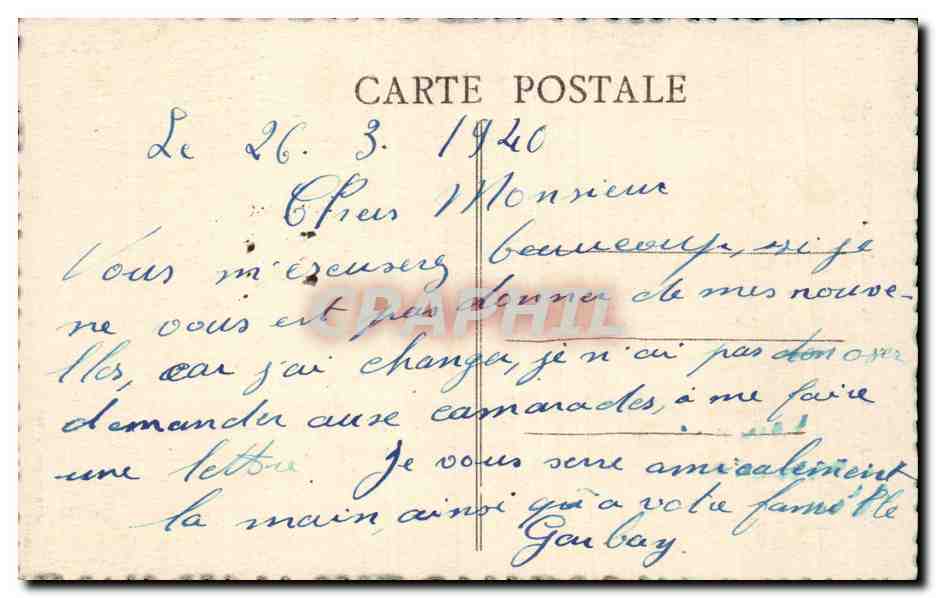 CARTE POSTALE
Le 26. 3. 1940
Cher Monsieur
Vous m'excuserez beaucoup, si je
ne vous est pas donner de mes nouve-
lles, car j'ai changer, je n'ai pas oser
demander aux camarades, à me faire
une lettre. Je vous serre amicalement
la main, ainsi qu'a votre famille
Garbay.
CRAPHIL